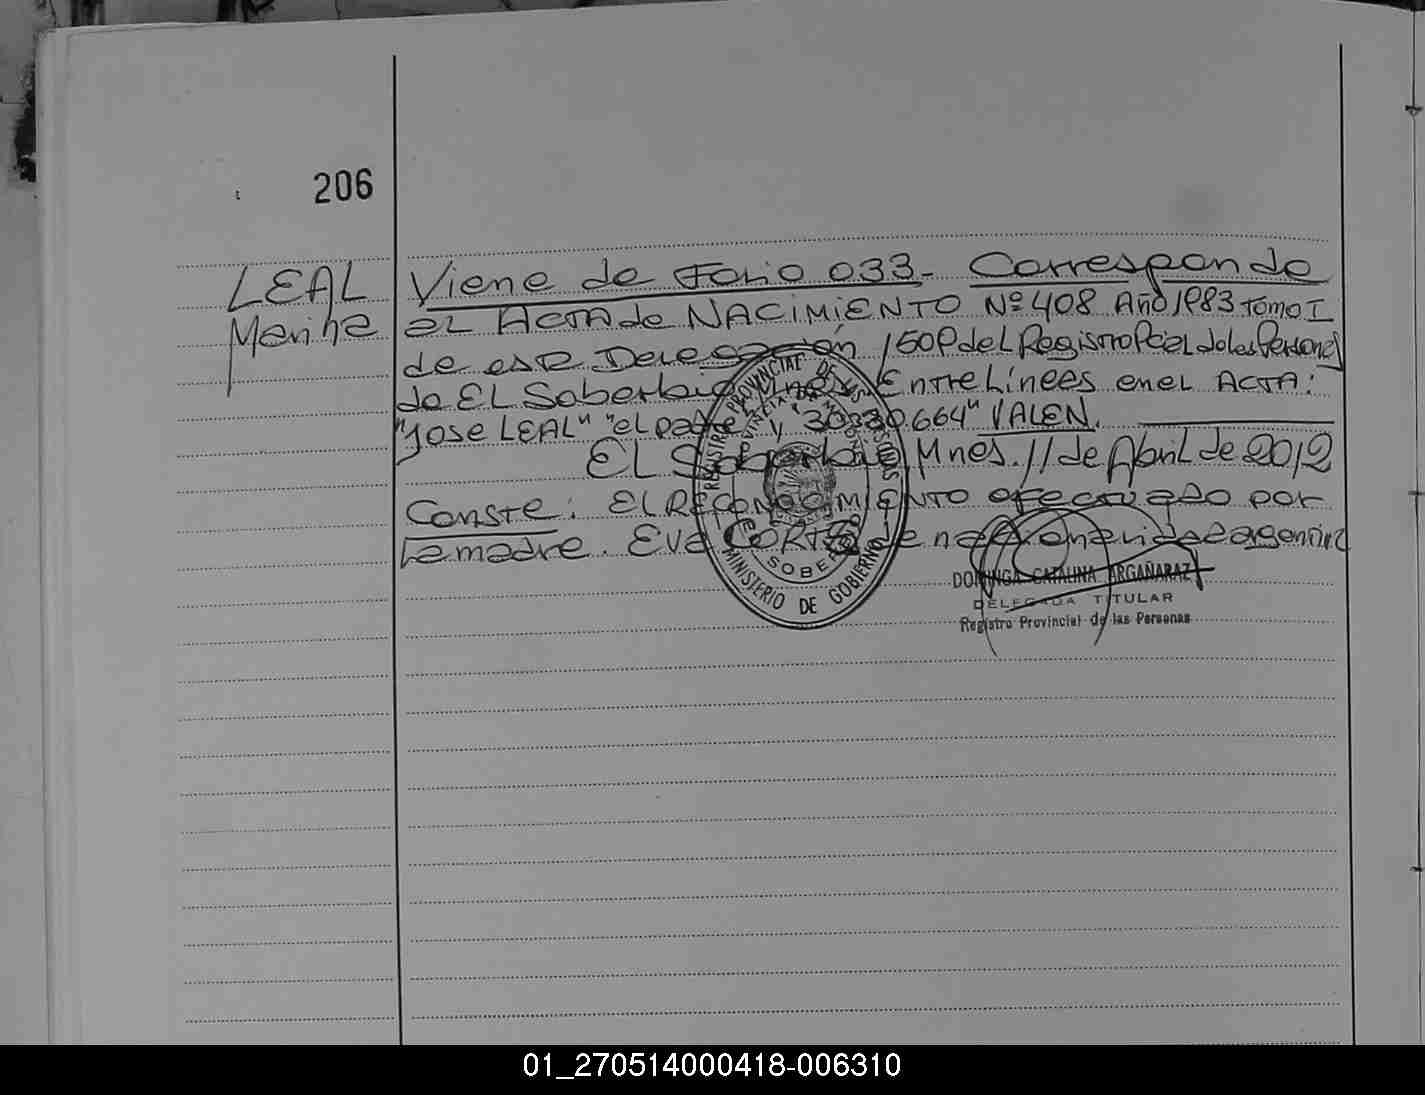 206
LEAL
Marina
Viene de Folio 033. Corresponde
al ACTA de NACIMIENTO Nº 408 Año 1983 Tomo I
de esta Delegación 150P del Registro Pcial de las Personas
de EL Soberbio Mnes. Entre Líneas en el ACTA:
"Jose LEAL" "el padre" y "30330664" VALEN.
EL Soberbio, Mnes. 11 de Abril de 2012
Conste: El RECONOCIMIENTO efectuado por
la madre. Eva CORTES de nacionalidad argentina
REGISTRO PROVINCIAL DE LAS PERSONAS
PROVINCIA DE MISIONES
SOBERBIO
MINISTERIO DE GOBIERNO
DOMINGA CATALINA ARGAÑARAZ
DELEGADA TITULAR
Registro Provincial de las Personas
01_270514000418-006310